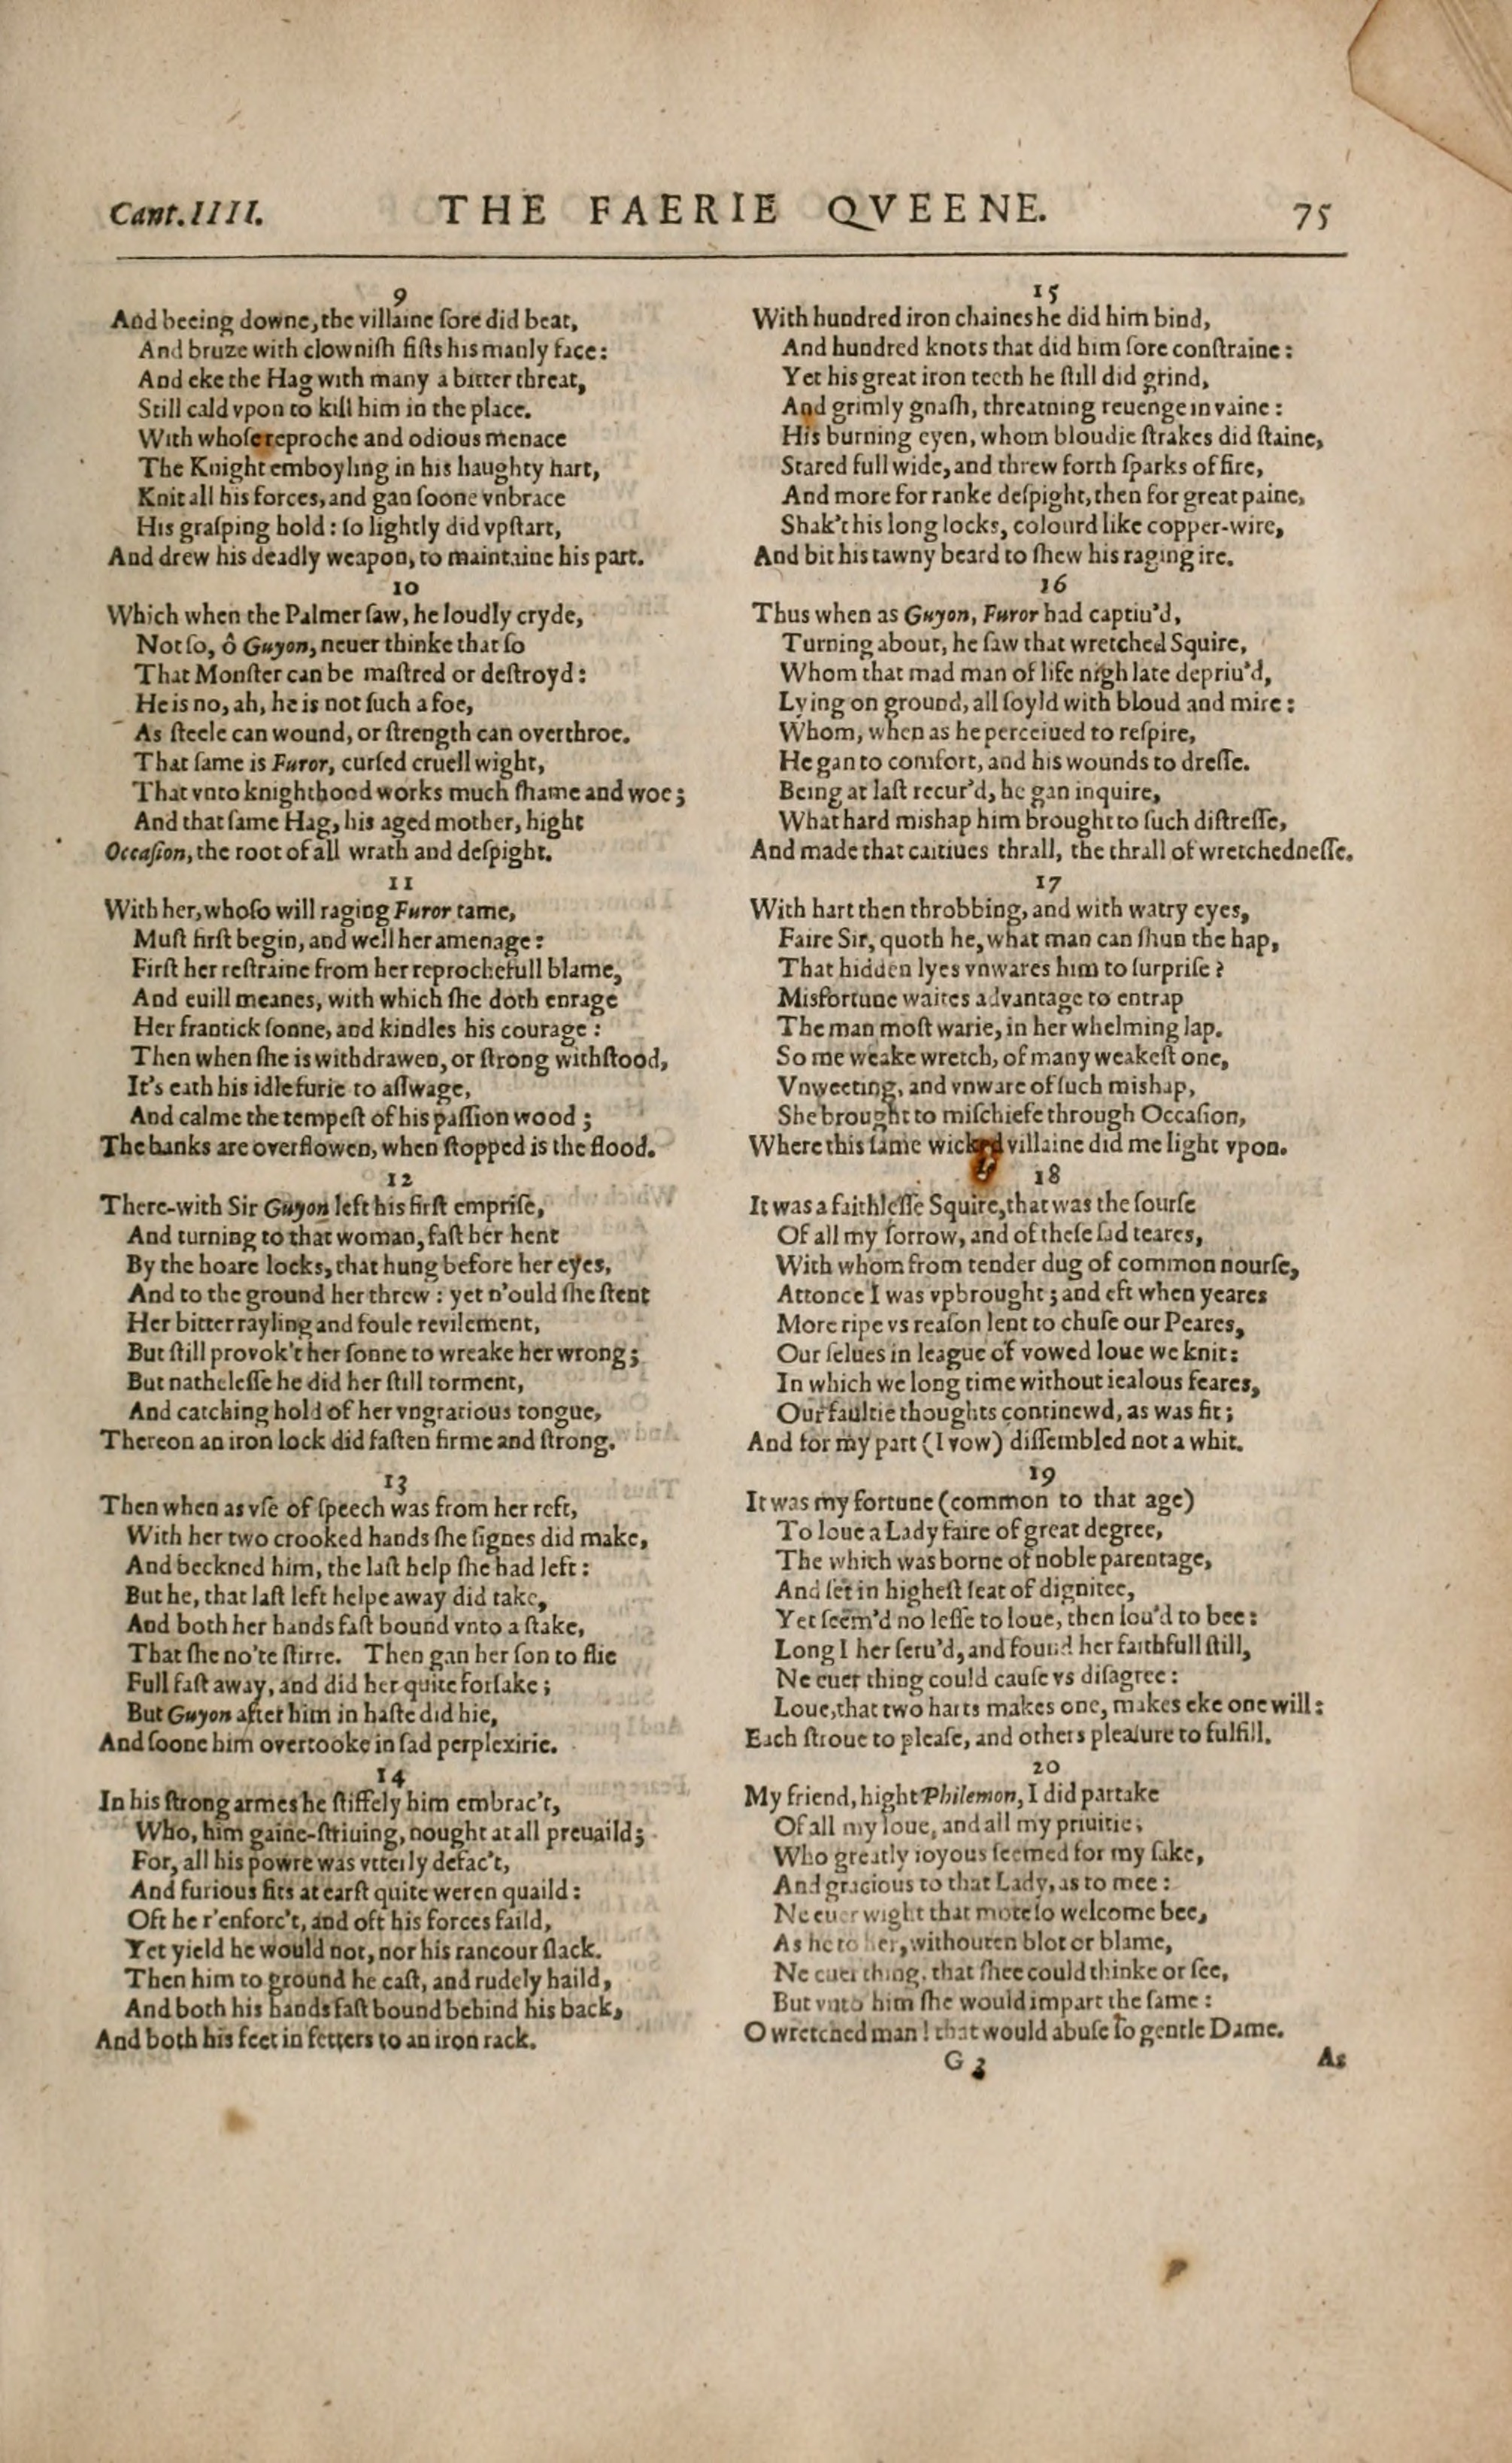 Cant.IIII. THE FAERIE QVEENE. 75
9
And beeing downe, the villaine ſore did beat,
And bruze with clowniſh fiſts his manly face:
And eke the Hag with many a bitter threat,
Still cald vpon to kill him in the place.
With whoſe reproche and odious menace
The Knight emboyling in his haughty hart,
Knit all his forces, and gan ſoone vnbrace
His graſping hold: ſo lightly did vpſtart,
And drew his deadly weapon, to maintaine his part.
10
Which when the Palmer ſaw, he loudly cryde,
Not ſo, ô Guyon, neuer thinke that ſo
That Monſter can be maſtred or deſtroyd:
He is no, ah, he is not ſuch a foe,
As ſteele can wound, or ſtrength can overthroe.
That ſame is Furor, curſed cruell wight,
That vnto knighthood works much ſhame and woe;
And that ſame Hag, his aged mother, hight
Occaſion, the root of all wrath and deſpight.
11
With her, whoſo will raging Furor tame,
Muſt firſt begin, and well her amenage:
Firſt her reſtraine from her reprochefull blame,
And euill meanes, with which ſhe doth enrage
Her frantick ſonne, and kindles his courage:
Then when ſhe is withdrawen, or ſtrong withſtood,
It's eath his idle furie to aſſwage,
And calme the tempeſt of his paſſion wood;
The banks are overflowen, when ſtopped is the flood.
12
There-with Sir Guyon left his firſt empriſe,
And turning to that woman, faſt her hent
By the hoare locks, that hung before her eyes,
And to the ground her threw: yet n'ould ſhe ſtent
Her bitter rayling and foule revilement,
But ſtill provok't her ſonne to wreake her wrong;
But natheleſſe he did her ſtill torment,
And catching hold of her vngratious tongue,
Thereon an iron lock did faſten firme and ſtrong.
13
Then when as vſe of ſpeech was from her reft,
With her two crooked hands ſhe ſignes did make,
And beckned him, the laſt help ſhe had left:
But he, that laſt left helpe away did take,
And both her hands faſt bound vnto a ſtake,
That ſhe no'te ſtirre. Then gan her ſon to flie
Full faſt away, and did her quite forſake;
But Guyon after him in haſte did hie,
And ſoone him overtooke in ſad perplexitie.
14
In his ſtrong armes he ſtiffely him embrac't,
Who, him gaine-ſtriuing, nought at all preuaild;
For, all his powre was vtterly defac't,
And furious fits at earſt quite weren quaild:
Oft he r'enforc't, and oft his forces faild,
Yet yield he would not, nor his rancour ſlack.
Then him to ground he caſt, and rudely haild,
And both his hands faſt bound behind his back,
And both his feet in fetters to an iron rack.
15
With hundred iron chaines he did him bind,
And hundred knots that did him ſore conſtraine:
Yet his great iron teeth he ſtill did grind,
And grimly gnaſh, threatning reuenge in vaine:
His burning eyen, whom bloudie ſtrakes did ſtaine,
Stared full wide, and threw forth ſparks of fire,
And more for ranke deſpight, then for great paine,
Shak't his long locks, colourd like copper-wire,
And bit his tawny beard to ſhew his raging ire.
16
Thus when as Guyon, Furor had captiu'd,
Turning about, he ſaw that wretched Squire,
Whom that mad man of life nigh late depriu'd,
Lying on ground, all ſoyld with bloud and mire:
Whom, when as he perceiued to reſpire,
He gan to comfort, and his wounds to dreſſe.
Being at laſt recur'd, he gan inquire,
What hard mishap him brought to ſuch diſtreſſe,
And made that caitiues thrall, the thrall of wretchedneſſe.
17
With hart then throbbing, and with watry eyes,
Faire Sir, quoth he, what man can ſhun the hap,
That hidden lyes vnwares him to ſurpriſe?
Misfortune waites advantage to entrap
The man moſt warie, in her whelming lap.
So me weake wretch, of many weakeſt one,
Vnweeting, and vnware of ſuch mishap,
She brought to miſchiefe through Occaſion,
Where this ſame wicked villaine did me light vpon.
18
It was a faithleſſe Squire, that was the ſourſe
Of all my ſorrow, and of theſe ſad teares,
With whom from tender dug of common nourſe,
Attonce I was vpbrought; and eft when yeares
More ripe vs reaſon lent to chuſe our Peares,
Our ſelues in league of vowed loue we knit:
In which we long time without iealous feares,
Our faultie thoughts continewd, as was fit;
And for my part (I vow) diſſembled not a whit.
19
It was my fortune (common to that age)
To loue a Lady faire of great degree,
The which was borne of noble parentage,
And ſet in higheſt ſeat of dignitee,
Yet ſeem'd no leſſe to loue, then lou'd to bee:
Long I her ſeru'd, and found her faithfull ſtill,
Ne euer thing could cauſe vs diſagree:
Loue, that two harts makes one, makes eke one will:
Each ſtroue to pleaſe, and others pleaſure to fulfill.
20
My friend, hight Philemon, I did partake
Of all my loue, and all my priuitie;
Who greatly ioyous ſeemed for my ſake,
And gracious to that Lady, as to mee:
Ne euer wight that mote ſo welcome bee,
As he to her, withouten blot or blame,
Ne euer thing, that ſhee could thinke or ſee,
But vnto him ſhe would impart the ſame:
O wretched man! that would abuſe ſo gentle Dame.
G 3 As